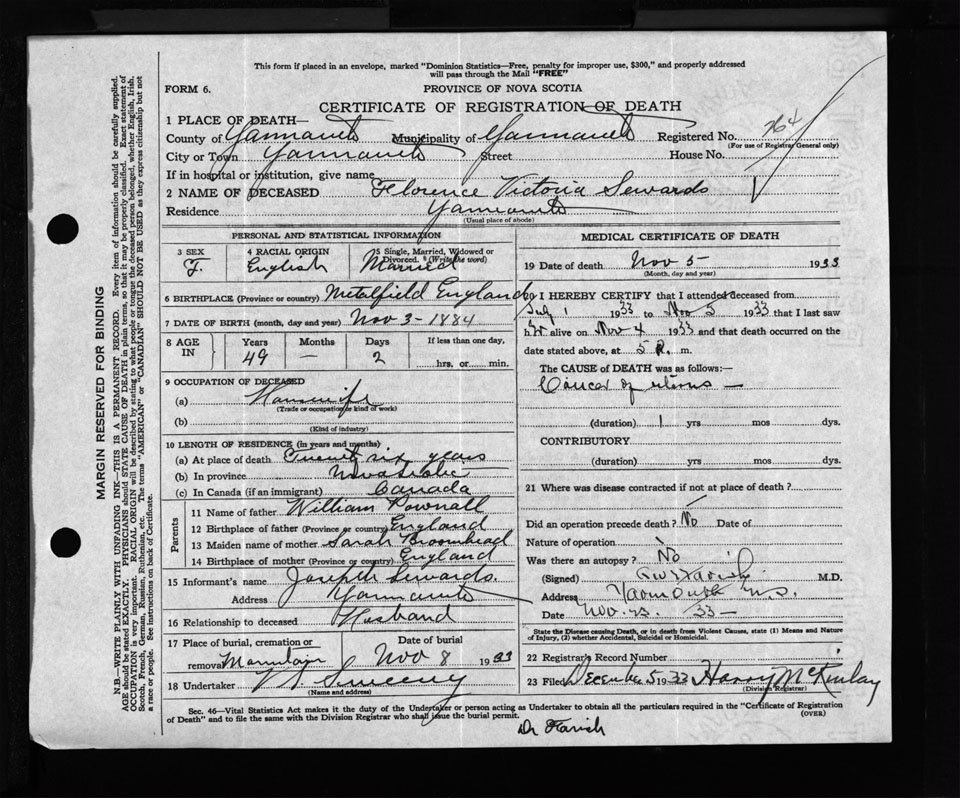 This form if placed in an envelope, marked "Dominion Statistics—Free, penalty for improper use, $300," and properly addressed
will pass through the Mail "FREE"
FORM 6.
PROVINCE OF NOVA SCOTIA
CERTIFICATE OF REGISTRATION OF DEATH
1 PLACE OF DEATH—
County of Yarmouth Municipality of Yarmouth Registered No. 764
(For use of Registrar General only)
City or Town Yarmouth Street House No.
If in hospital or institution, give name
2 NAME OF DECEASED Florence Victoria Sewards
Residence Yarmouth
(Usual place of abode)
PERSONAL AND STATISTICAL INFORMATION
3 SEX F.
4 RACIAL ORIGIN English
5 Single, Married, Widowed or Divorced. (Write the word) Married
6 BIRTHPLACE (Province or country) England
7 DATE OF BIRTH (month, day and year) Nov 3-1884
8 AGE IN Years 49 Months — Days 2 If less than one day, hrs. or min.
9 OCCUPATION OF DECEASED
(a) Housewife
(Trade or occupation or kind of work)
(b)
(Kind of industry)
10 LENGTH OF RESIDENCE (in years and months)
(a) At place of death Twenty six years
(b) In province Nova Scotia
(c) In Canada (if an immigrant) Canada
Parents
11 Name of father William Pownall
12 Birthplace of father (Province or country) England
13 Maiden name of mother Sarah Broomhead
14 Birthplace of mother (Province or country) England
15 Informant's name Joseph Sewards.
Address Yarmouth
16 Relationship to deceased Husband
17 Place of burial, cremation or removal
Date of burial Nov 8 1933
18 Undertaker V S Sweeny
(Name and address)
MEDICAL CERTIFICATE OF DEATH
19 Date of death Nov 5 1933
(Month, day and year)
20 I HEREBY CERTIFY that I attended deceased from
July 1 1933 to Nov 5 1933 that I last saw
her alive on Nov 4 1933 and that death occurred on the
date stated above, at 5 m.
The CAUSE of DEATH was as follows:—
Cancer of uterus —
(duration) 1 yrs mos dys.
CONTRIBUTORY
(duration) yrs. mos. dys.
21 Where was disease contracted if not at place of death?
Did an operation precede death? No Date of
Nature of operation
Was there an autopsy? No
(Signed) Farish M.D.
Address Yarmouth N.S.
Date Nov. 33—
State the Disease causing Death, or in death from Violent Causes, state (1) Means and Nature
of Injury, (2) whether Accidental, Suicidal or Homicidal.
22 Registrar's Record Number
23 Filed December 5 1933 Harry McKinlay
(Division Registrar)
Sec. 46—Vital Statistics Act makes it the duty of the Undertaker or person acting as Undertaker to obtain all the particulars required in the "Certificate of Registration
of Death" and to file the same with the Division Registrar who shall issue the burial permit. (OVER)
Dr Farish
MARGIN RESERVED FOR BINDING
N.B.—WRITE PLAINLY WITH UNFADING INK—THIS IS A PERMANENT RECORD. Every item of information should be carefully supplied.
AGE should be stated EXACTLY. PHYSICIANS should STATE CAUSE OF DEATH in plain terms, so that it may be properly classified. Exact statement of
OCCUPATION is very important. RACIAL ORIGIN will be described by stating to what people or tongue the deceased person belonged, whether English, Irish,
Scotch, French, German, Russian, Ruthenian, etc. The terms "AMERICAN" or "CANADIAN" SHOULD NOT BE USED as they express citizenship but not
a race or people. See instructions on back of Certificate.